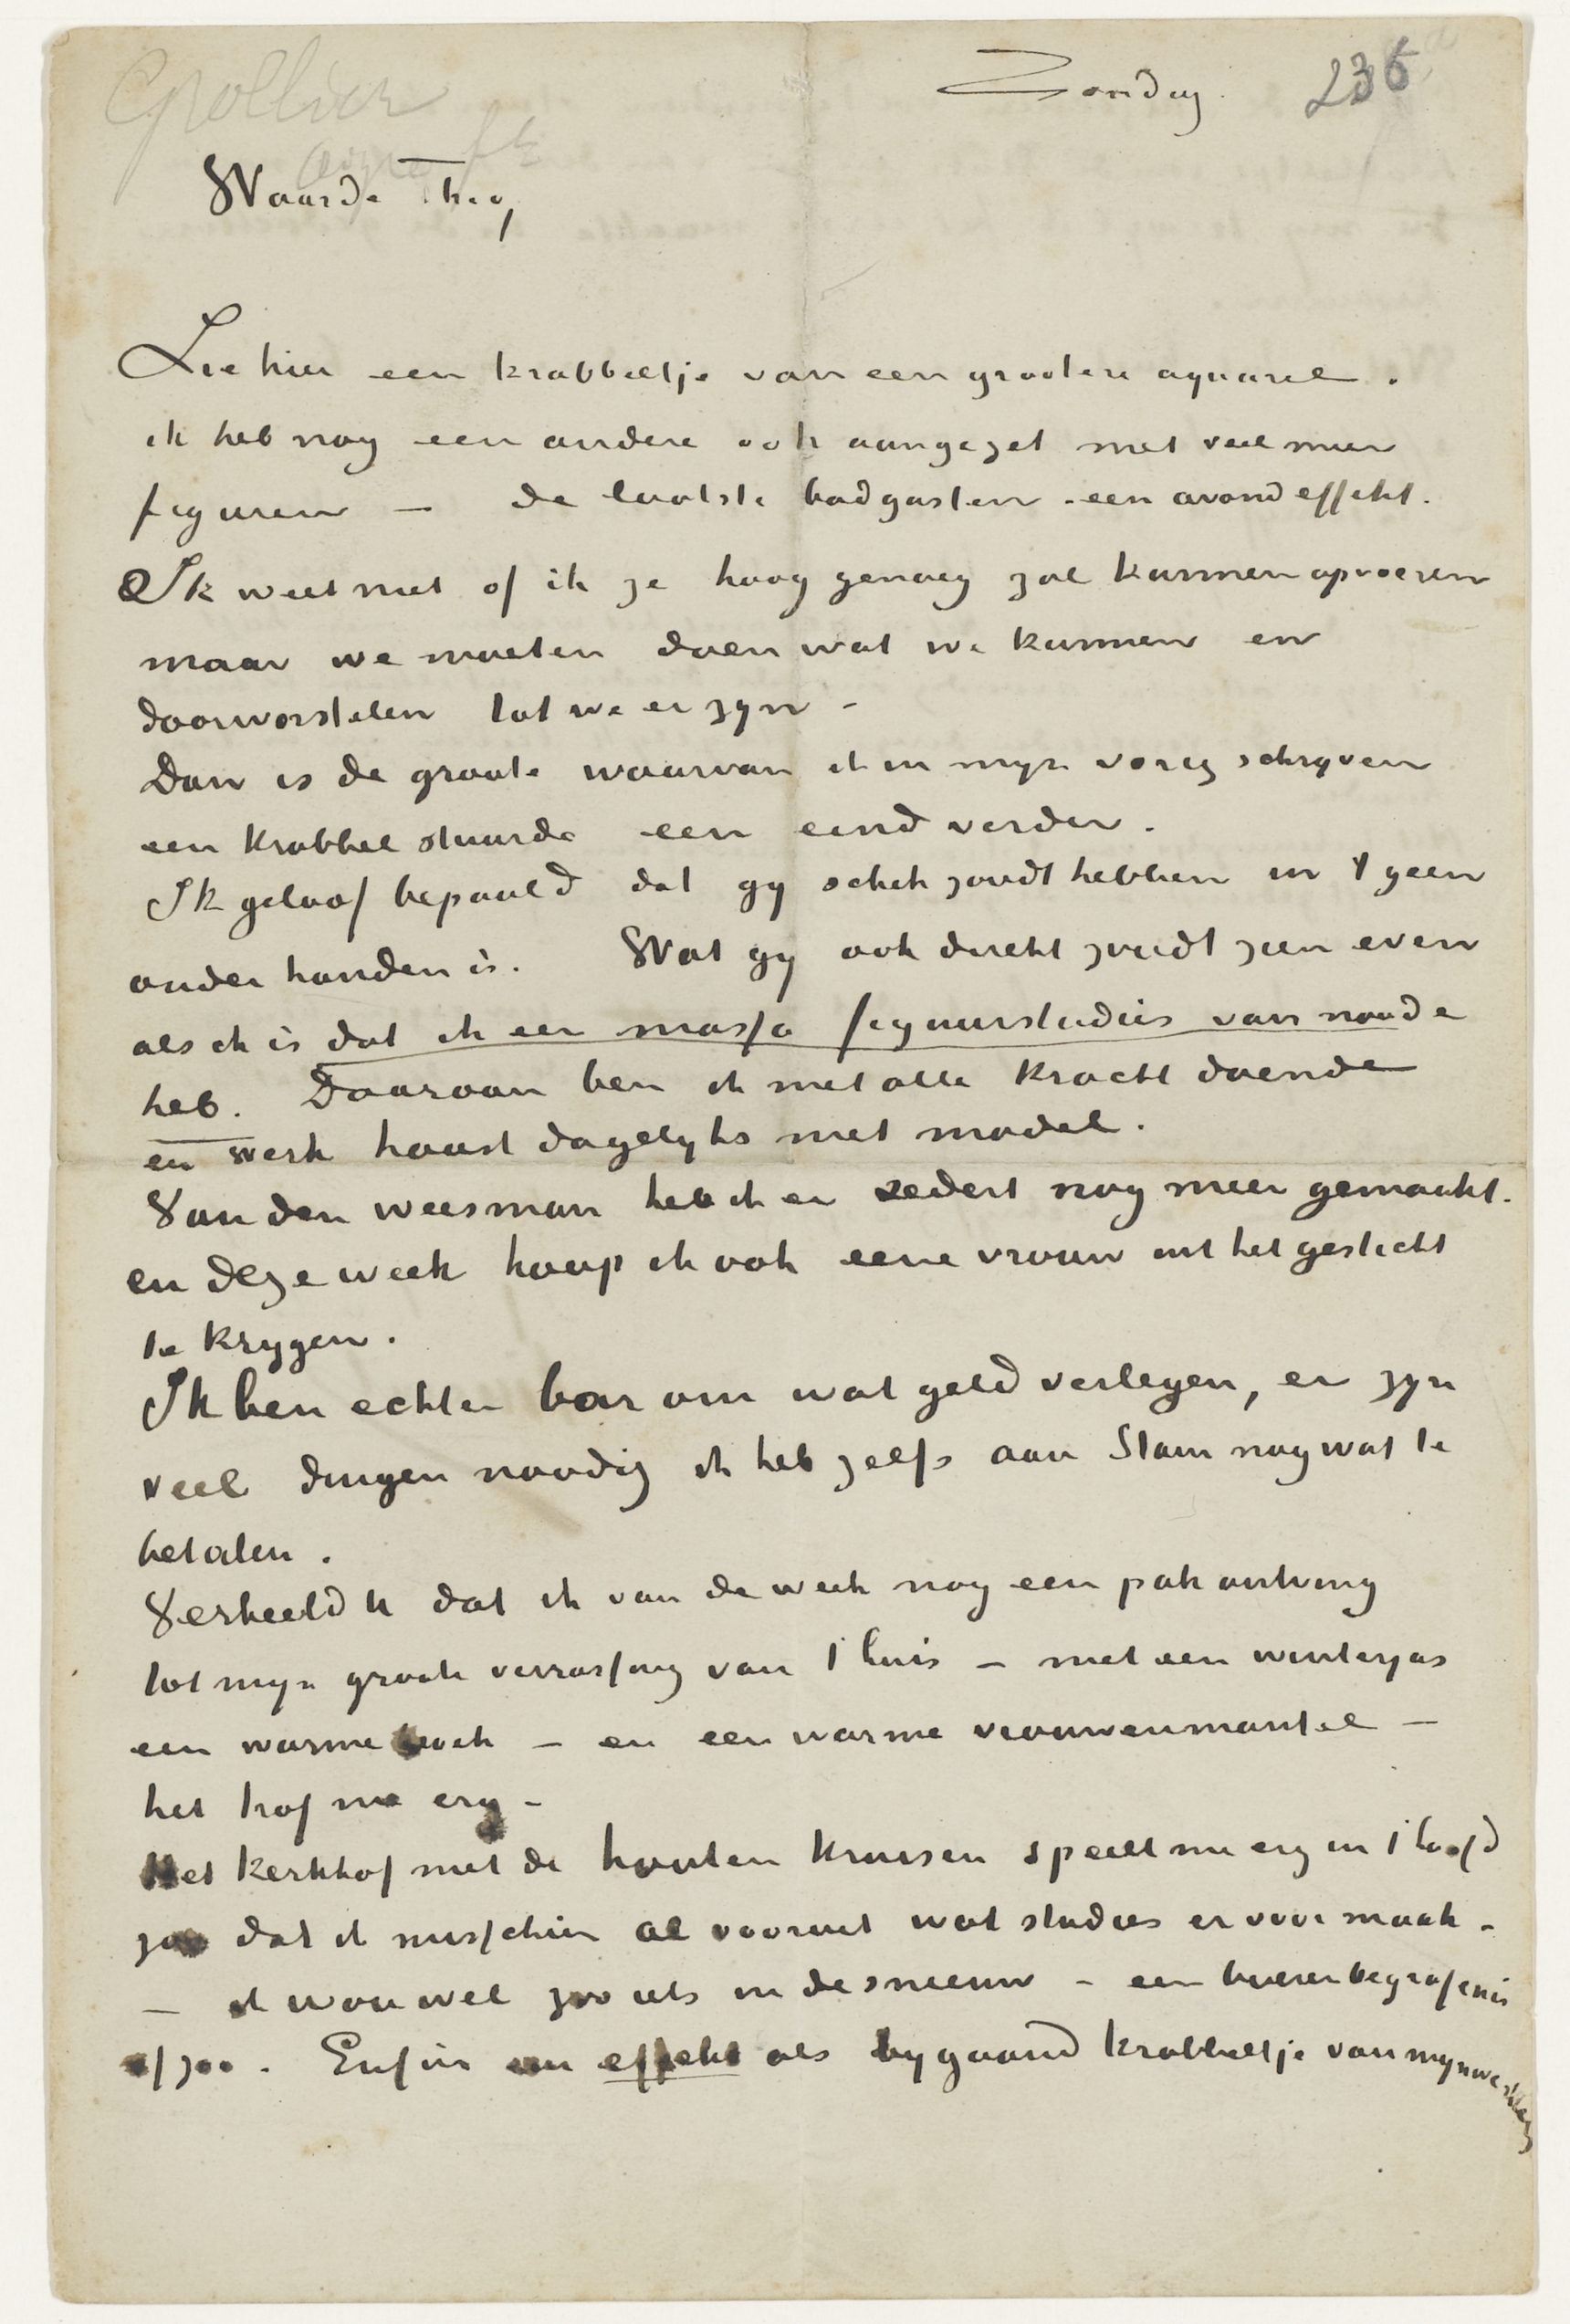 Zondag. 236
Waarde Theo,
Zie hier een krabbeltje van een grootere aquarel.
ik heb nog een andere ook aangezet met veel meer
figuren — de laatste badgasten – een avondeffekt.
Ik weet niet of ik ze hoog genoeg zal kunnen opvoeren
maar we moeten doen wat we kunnen en
doorworstelen tot we er zyn –
Dan is de groote waarvan ik in myn vorig schryven
een krabbel stuurde een eind verder.
Ik geloof bepaald dat gy schik zoudt hebben in 't geen
onder handen is. Wat gy ook direkt zoudt zien even
als ik is dat ik een massa figuurstudies van noode
heb. Daaraan ben ik met alle kracht doende
en werk haast dagelyks met model.
Van den weesman heb ik er zedert nog meer gemaakt.
en deze week hoop ik ook eene vrouw uit het gesticht
te krygen.
Ik ben echter bar om wat geld verlegen, er zyn
veel dingen noodig ik heb zelfs aan Stam nog wat te
betalen.
Verbeeld U dat ik van de week nog een pak ontving
tot myn groote verrassing van t'huis – met een winterjas
een warme broek – en een warme vrouwenmantel –
het trof me erg –
Het kerkhof met de houten kruisen speelt me erg in 't hoofd
zoo dat ik misschien al vooruit wat studies er voor maak –
– ik wou wel zoo iets in de sneeuw – een boerenbegrafenis
of zoo. Enfin een effekt als bygaand krabbeltje van mynwerkers